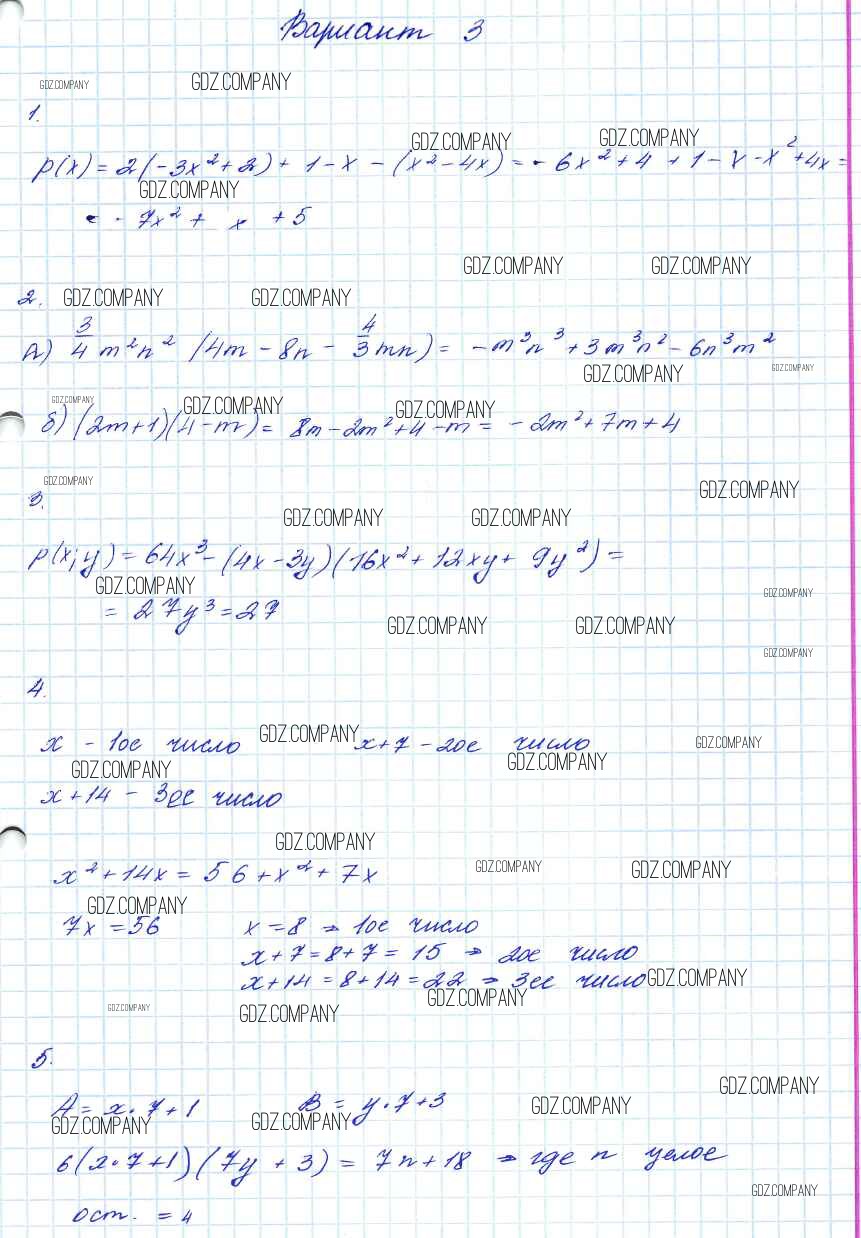 Вариант 3
GDZ.COMPANY GDZ.COMPANY
1.
GDZ.COMPANY GDZ.COMPANY
p(x) = 2(-3x²+2) + 1-x - (x²-4x) = - 6x²+4 + 1-x-x²+4x =
GDZ.COMPANY
= - 7x² + x + 5
GDZ.COMPANY GDZ.COMPANY
2. GDZ.COMPANY GDZ.COMPANY
А) 3/4 m²n² (4m - 8n - 4/3 mn) = -m³n³+3m³n²-6n³m²
GDZ.COMPANY GDZ.COMPANY
GDZ.COMPANY GDZ.COMPANY GDZ.COMPANY
б) (2m+1)(4-m) = 8m-2m²+4-m = -2m²+7m+4
GDZ.COMPANY GDZ.COMPANY
3.
GDZ.COMPANY GDZ.COMPANY
p(x;y) = 64x³-(4x-3y)(16x²+12xy+ 9y²) =
GDZ.COMPANY GDZ.COMPANY
= 27y³=27
GDZ.COMPANY GDZ.COMPANY
GDZ.COMPANY
4.
x - 1ое число GDZ.COMPANY x+7 - 2ое число GDZ.COMPANY
GDZ.COMPANY GDZ.COMPANY
x+14 - 3ее число
GDZ.COMPANY
x²+14x = 56+x²+7x GDZ.COMPANY GDZ.COMPANY
GDZ.COMPANY
7x = 56 x = 8 → 1ое число
x+7=8+7= 15 → 2ое число
x+14=8+14=22 → 3ее число GDZ.COMPANY
GDZ.COMPANY GDZ.COMPANY GDZ.COMPANY
5.
GDZ.COMPANY
A = x·7+1 B = y·7+3 GDZ.COMPANY
GDZ.COMPANY GDZ.COMPANY
6(x·7+1)(7y+3) = 7n+18 → где n целое
GDZ.COMPANY
ост. = 4